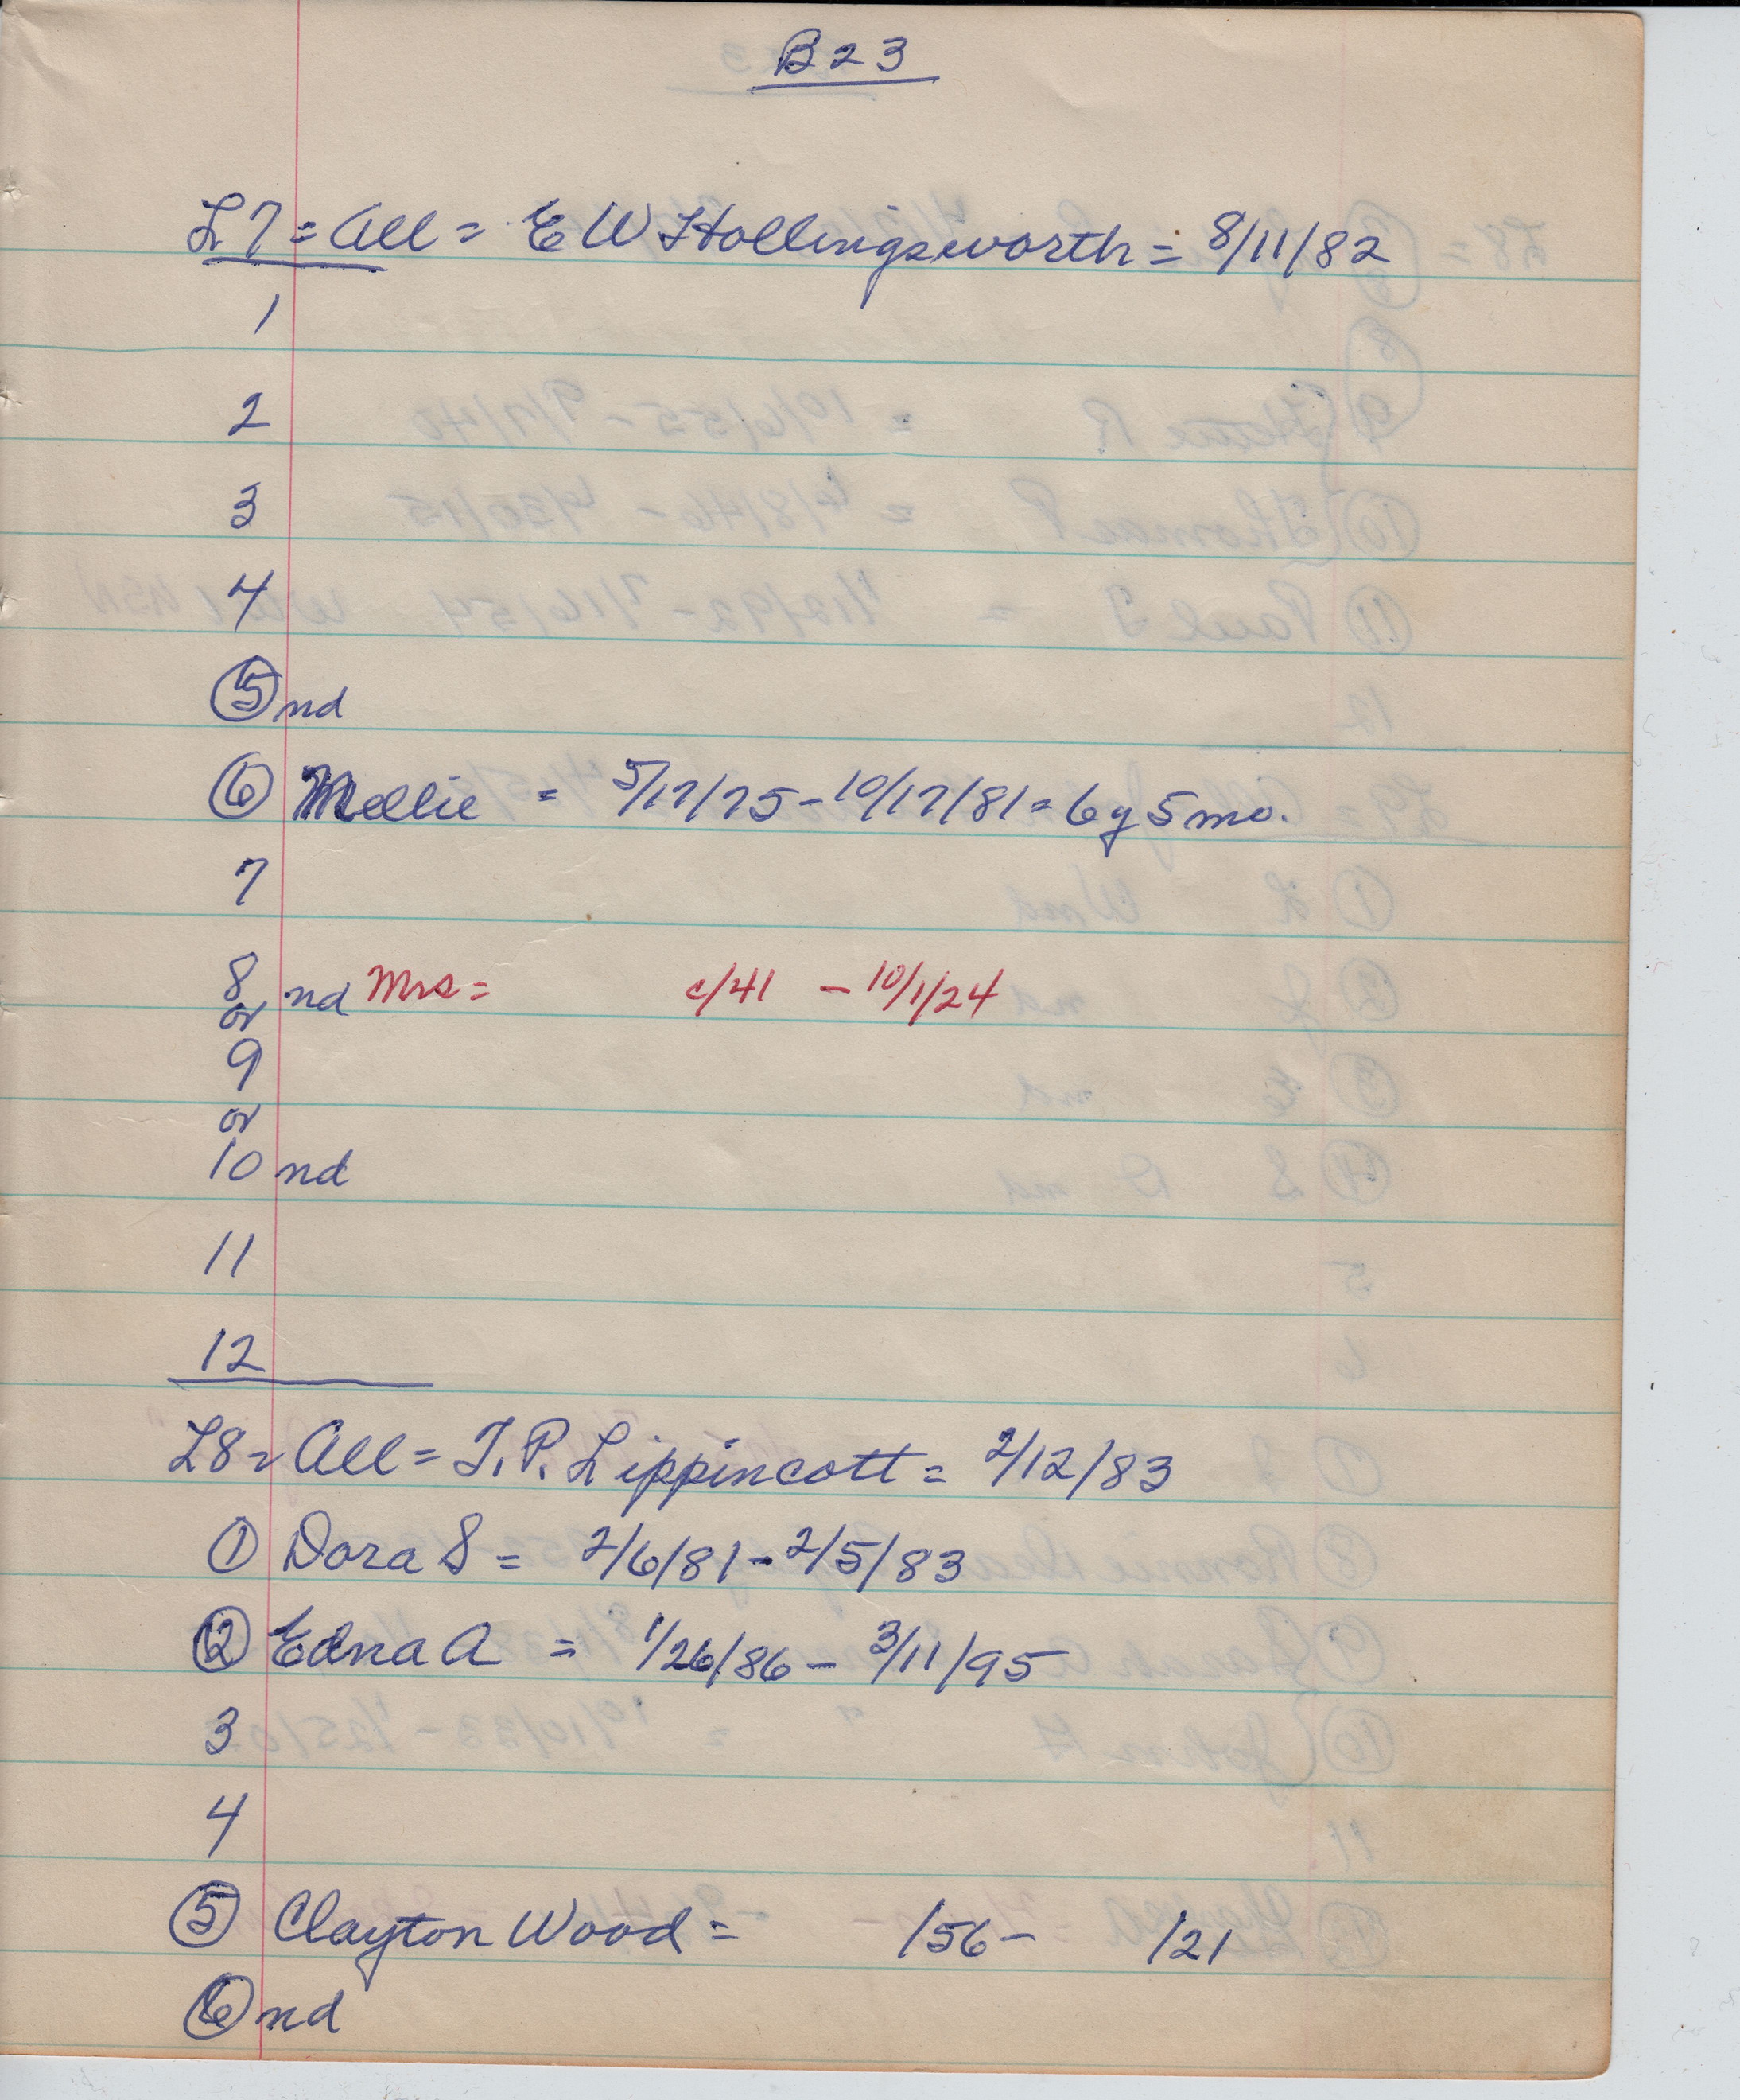 B23
L7 = All = E W Hollingsworth = 8/11/82
1
2
3
4
5 nd
6 Mellie = 5/17/75 - 10/17/81 = 6 y 5 mo.
7
8 nd Mrs = c/41 - 10/1/24
or
9
or
10 nd
11
12
L8 = All = T. P. Lippincott = 2/12/83
1 Dora S = 2/6/81 - 2/5/83
2 Edna A = 1/26/86 - 3/11/95
3
4
5 Clayton Wood = /56 - /21
6 nd